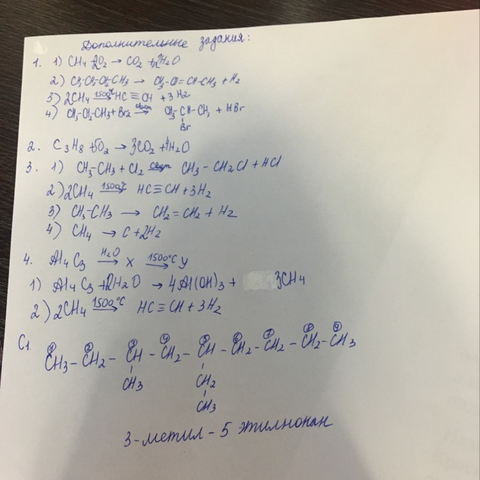 Дополнительные задания:
1. 1) CH4 + 2O2 → CO2 + 2H2O
2) CH3-CH2-CH2-CH3 → CH3-CH=CH-CH3 + H2
3) 2CH4 1500°C→ HC≡CH + 3H2
4) CH3-CH2-CH3 + Br2 свет→ CH3-CH-CH3 + HBr
Br
2. C3H8 + 5O2 → 3CO2 + 4H2O
3. 1) CH3-CH3 + Cl2 свет→ CH3-CH2Cl + HCl
2) 2CH4 1500°C→ HC≡CH + 3H2
3) CH3-CH3 → CH2=CH2 + H2
4) CH4 → C + 2H2
4. Al4C3 H2O→ X 1500°C→ y
1) Al4C3 + 12H2O → 4Al(OH)3 + 3CH4
2) 2CH4 1500°C→ HC≡CH + 3H2
C1 CH3-CH2-CH-CH2-CH-CH2-CH2-CH2-CH3
CH3 CH2
CH3
3-метил-5 этилнонан